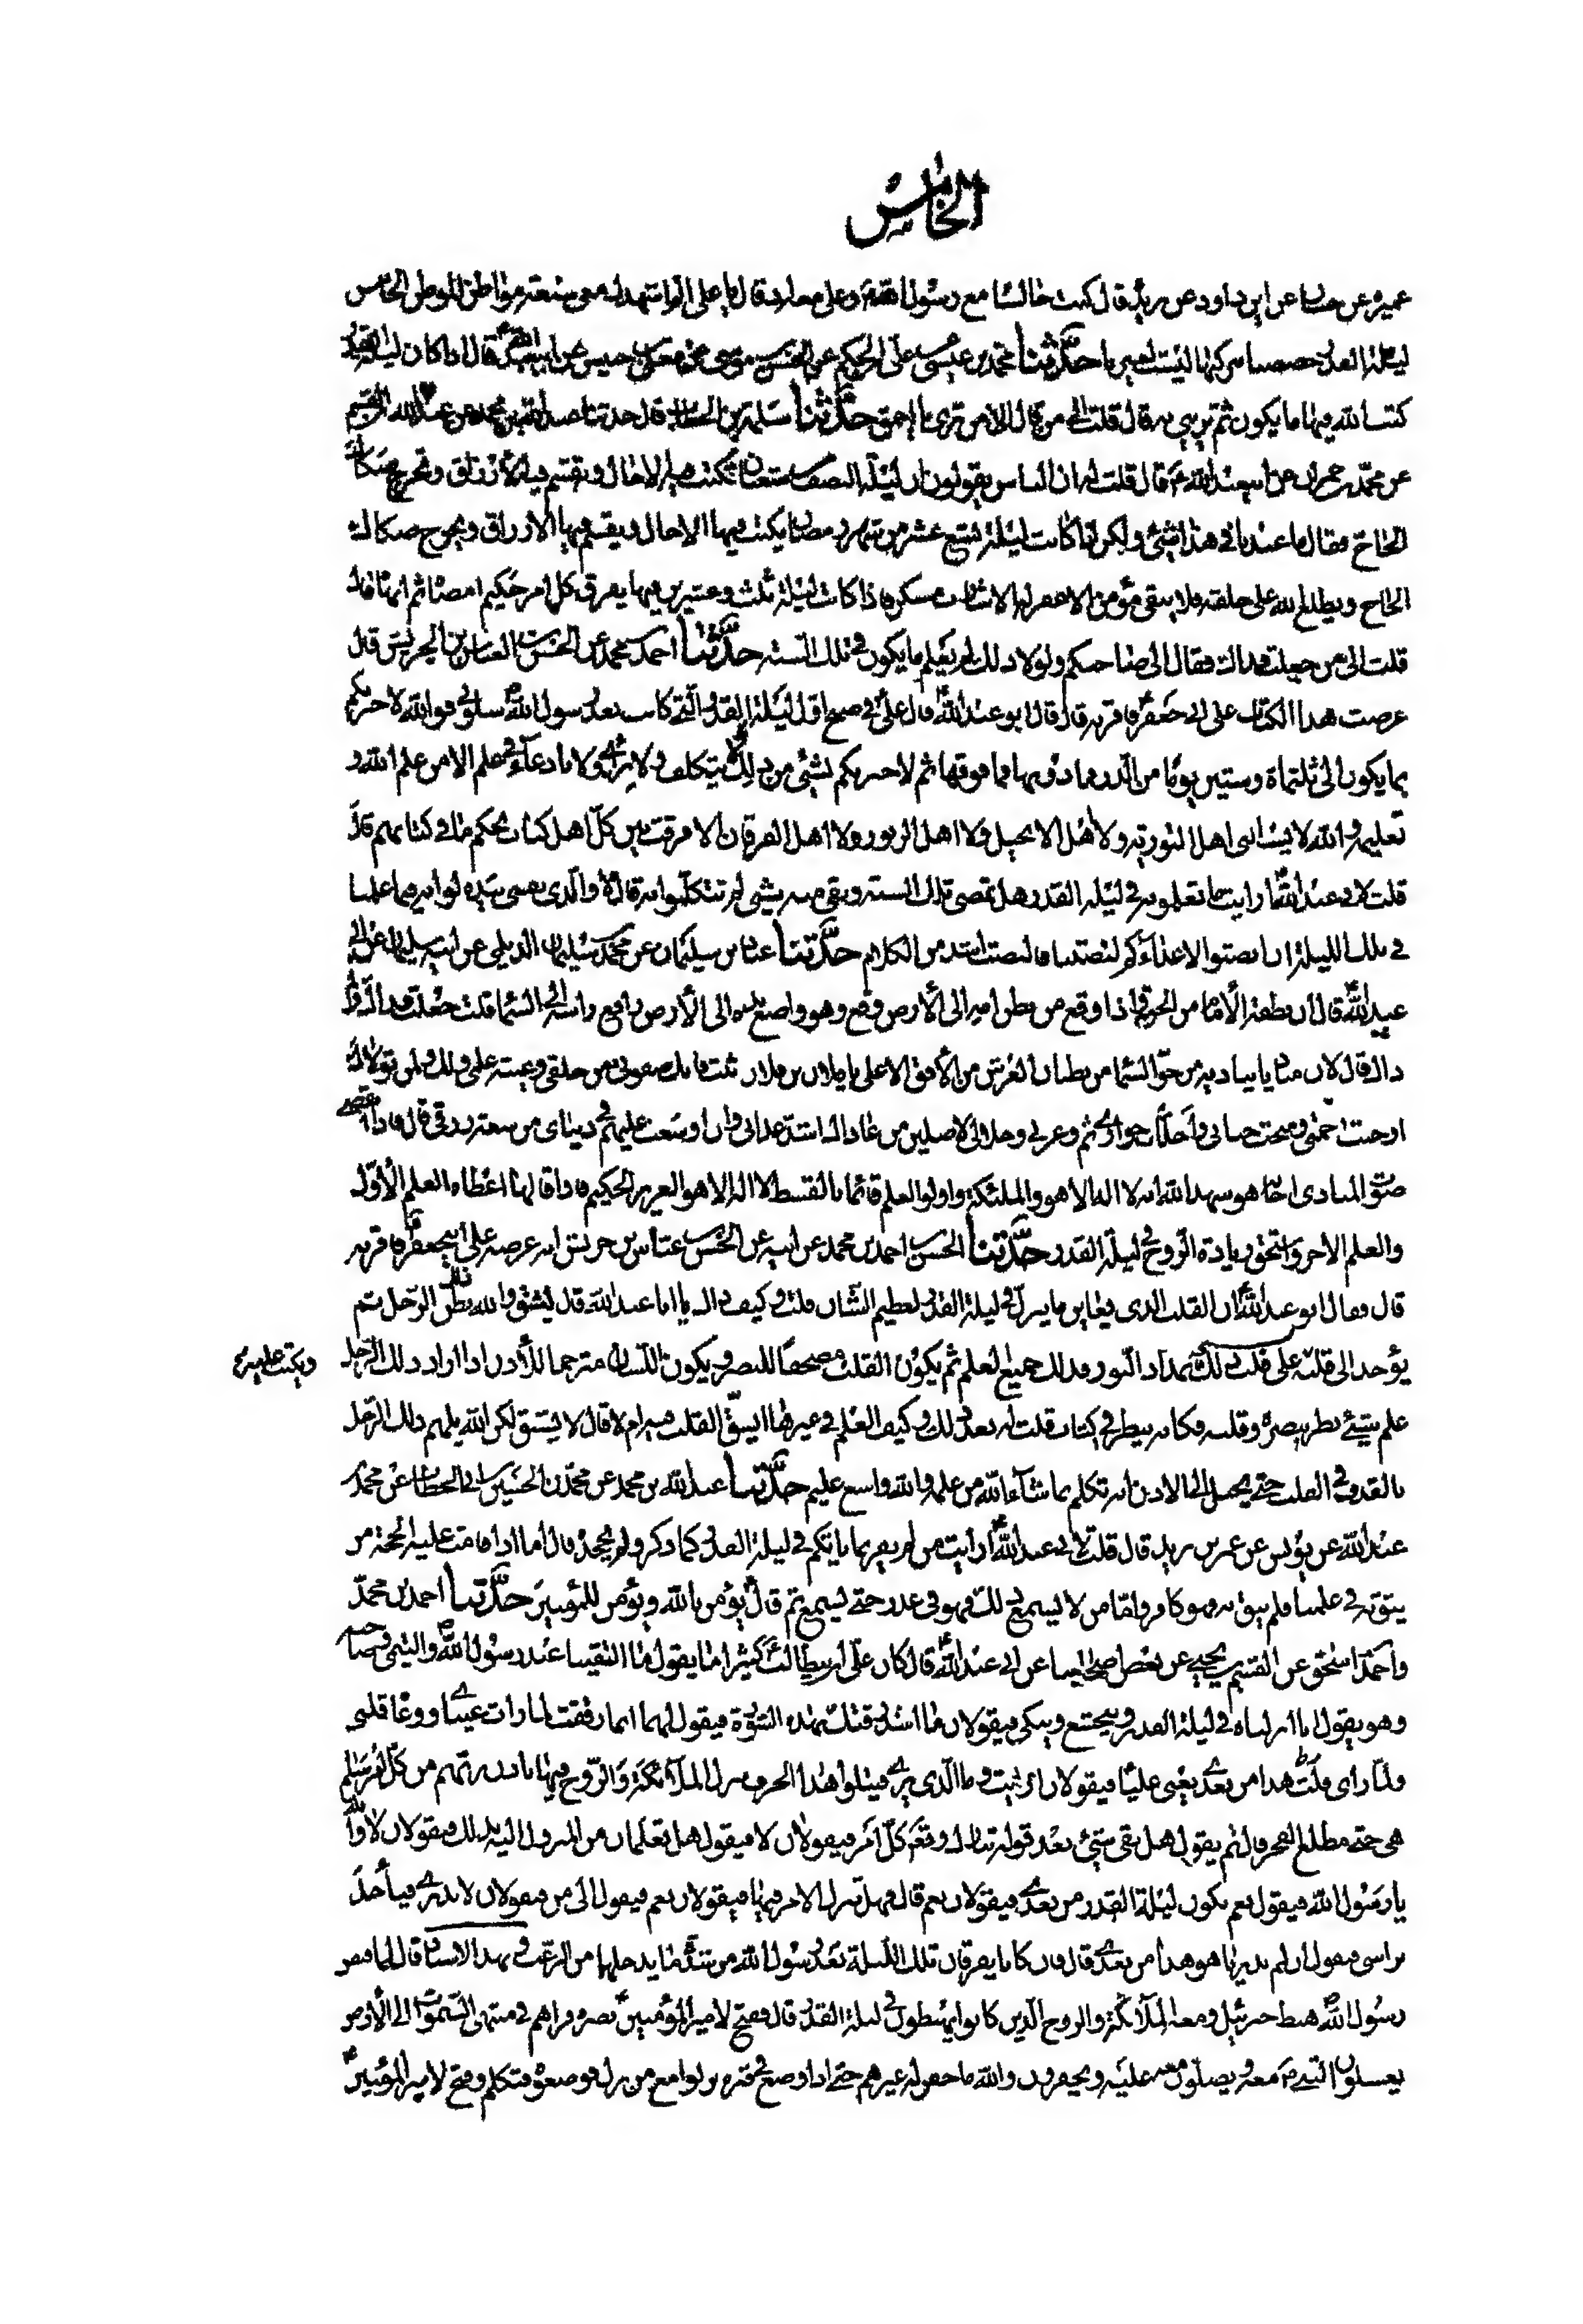 الخامس
عميرة عن صاد عن ابى داود عن بريدة قال كنت جالسا مع رسول الله ص وعلى معه اذ قال يا على الم اشهدك معى سبعة مواطن الموطن الخامس
ليلة القدر خصصنا ببركتها ليست لغيرنا حدثنا محمد بن عيسى على بن الحكم عن ابيعبد الله قال اذا كان ليلة القدر
كتب الله فيها ما يكون ثم يرمى به قال قلت الى من قال الى من ترى يا احمق حدثنا سلمة بن الخطاب قال حدثنا عبد الله بن محمد عن عبد الله بن القسم
عن محمد بن حمران عن ابيعبد الله ع قال قلت له ان الناس يقولون ان ليلة النصف من شعبان تكتب فيه الاجال وتقسم فيه الارزاق وتخرج صكاك
الحاج فقال ما عندنا فى هذا شيئ ولكن اذا كانت ليلة تسع عشر من شهر رمضان يكتب فيها الاجال ويقسم فيها الارزاق ويخرج صكاك
الحاج ويطلع الله على خلقه فلا يبقى مؤمن الا غفر له الا شارب مسكر فاذا كانت ليلة ثلث وعشرين فيها يفرق كل امر حكيم امضاه ثم انهاه قال
قلت الى من جعلت فداك فقال الى صاحبكم ولولا ذلك لم يعلم ما يكون فى تلك السنة حدثنا احمد بن محمد عن الحسن بن العباس بن الحريش قال
عرضت هذا الكتاب على ابى جعفر ع فاقر به قال قال ابو عبد الله ع قال على ع فى صبح اول ليلة القدر التى كانت بعد رسول الله ص سلونى فوالله لاخبرنكم
بما يكون الى ثلثماة وستين يوما من الذر فما دونها فما فوقها ثم لاخبرنكم بشيئ من ذلك لا بتكلف ولا براى ولا بادعاء فى علم الا من علم الله و
تعليمه والله لا يسئلنى اهل التورية ولا اهل الانجيل ولا اهل الزبور ولا اهل الفرقان الا فرقت بين كل اهل كتاب بحكم ما فى كتابهم قال
قلت لابى عبد الله ع ارايت ما تعلمونه فى ليلة القدر هل تمضى تلك السنة وبقى منه شيئ لم تتكلموا به قال لا والذى نفسى بيده لو انه فيما علمنا
فى تلك الليلة ان انصتوا لاعدائكم لنصتنا فالنصت اشد من الكلام حدثنا عباد بن سليمان عن محمد بن سليمان الديلمى عن ابيه سليمان عن ابى
عبد الله ع قال ان نطفة الامام من الجنة واذا وقع من بطن امه الى الارض وقع وهو واضع يده الى الارض رافع راسه الى السماء قلت جعلت فداك ولم
ذاك قال لان مناديا يناديه من جو السماء من بطنان العرش من الافق الاعلى يا فلان بن فلان اثبت فانك صفوتى من خلقى وعيبة علمى ولك ولمن تولاك
اوجبت رحمتى ومنحت جنانى واحللت جوارى ثم وعزتى وجلالى لاصلين من عاداك اشد عذابى وان اوسعت عليهم فى دنياى من سعة رزقى قال فاذا انقضى
صوت المنادى اجابه هو شهد الله انه لا اله الا هو والملئكة واولوا العلم قائما بالقسط لا اله الا هو العزيز الحكيم فاذا قالها اعطاه العلم الاول
والعلم الاخر واستحق زيادة الروح فى ليلة القدر حدثنا الحسن احمد بن محمد عن ابيه عن الحسن عباس بن حريش انه عرضه على ابيجعفر ع فاقر به
قال فقال ابو عبد الله ع ان القلب الذى يعاين ما ينزل فى ليلة القدر لعظيم الشان قلت وكيف ذاك يا ابا عبد الله قال ليشق والله بطن ذلك الرجل ثم
يؤخذ الى قلبه على قلب ذلك بمداد النور فذلك جميع العلم ثم يكون القلب مصحفا للبصر ويكون اللسان مترجما للاذن اذا اراد ذلك الرجل
ويكتب عليه
علم شيئ نظر ببصره وقلبه فكانه ينظر فى كتاب قلت له بعد ذلك وكيف العلم فى غيرها ايشق القلب فيه ام لا قال لا يشق لكن الله يلهم ذلك الرجل
بالقذف فى القلب حتى يخيل الى الاذن انه تكلم بما شاء الله من علمه والله واسع عليم حدثنا عبد الله بن محمد عن محمد بن الحسين بن ابى الخطاب عن محمد بن
عبد الله عن يونس عن عمر بن يزيد قال قلت لابى عبد الله ع ارايت من لم يقر بما ياتكم فى ليلة القدر كما ذكر ولم يجحد قال اما اذا قامت عليه الحجة من
يثق به فى علمنا فلم يثق به فهو كافر واما من لا يسمع ذلك فهو فى عذر حتى يسمع ثم قال ع يؤمن بالله ويؤمن للمؤمنين حدثنا احمد بن محمد
واحمد بن اسحق عن القسم بن يحيى عن بعض اصحابنا عن ابى عبد الله ع قال كان على بن ابيطالب ع كثيرا ما يقول ما التقينا عند رسول الله ص والتيمى وصاحبه
وهو يقول انا انزلناه فى ليلة القدر ويتخشع ويبكى فيقولان ما اشد رقتك بهذه السورة فيقول لهما انما رققت لما رات عيناى ووعا قلبى
ولما راى قلب هذا من بعدى يعنى عليا فيقولان ارايت وما الذى يرى فيتلوا هذا الحرف تنزل الملائكة والروح فيها باذن ربهم من كل امر سلام
هى حتى مطلع الفجر قال ثم يقول هل بقى شيئ بعد قوله تبارك وتعالى كل امر فيقولان لا فيقول هل تعلمان من المنزول اليه بذلك فيقولان لا والله
يا رسول الله فيقول نعم تكون ليلة القدر من بعدى فيقولان نعم قال فهل تنزل الامر فيها فيقولان نعم فيقول الى من فيقولان لا ندرى فياخذ
براسى فيقول ان لم تدريا هو هذا من بعدى قال فان كانا يفرقان تلك الليلة بعد رسول الله من شدة ما يدخلهما من الرعب وفى بهذا الاسناد قال لما قبض
رسول الله ص هبط جبرئيل ومعه الملائكة والروح الذين كانوا يهبطون فى ليلة القدر قال ففتح لامير المؤمنين ع بصره فراهم فى منتهى السموات الى الارض
يغسلون النبى ص معه ويصلون معه عليه ويحفرون والله ما حفر له غيرهم حتى اذا وضع فى قبره نزلوا مع من نزل فوضعوه فتكلم وفتح لامير المؤمنين ع